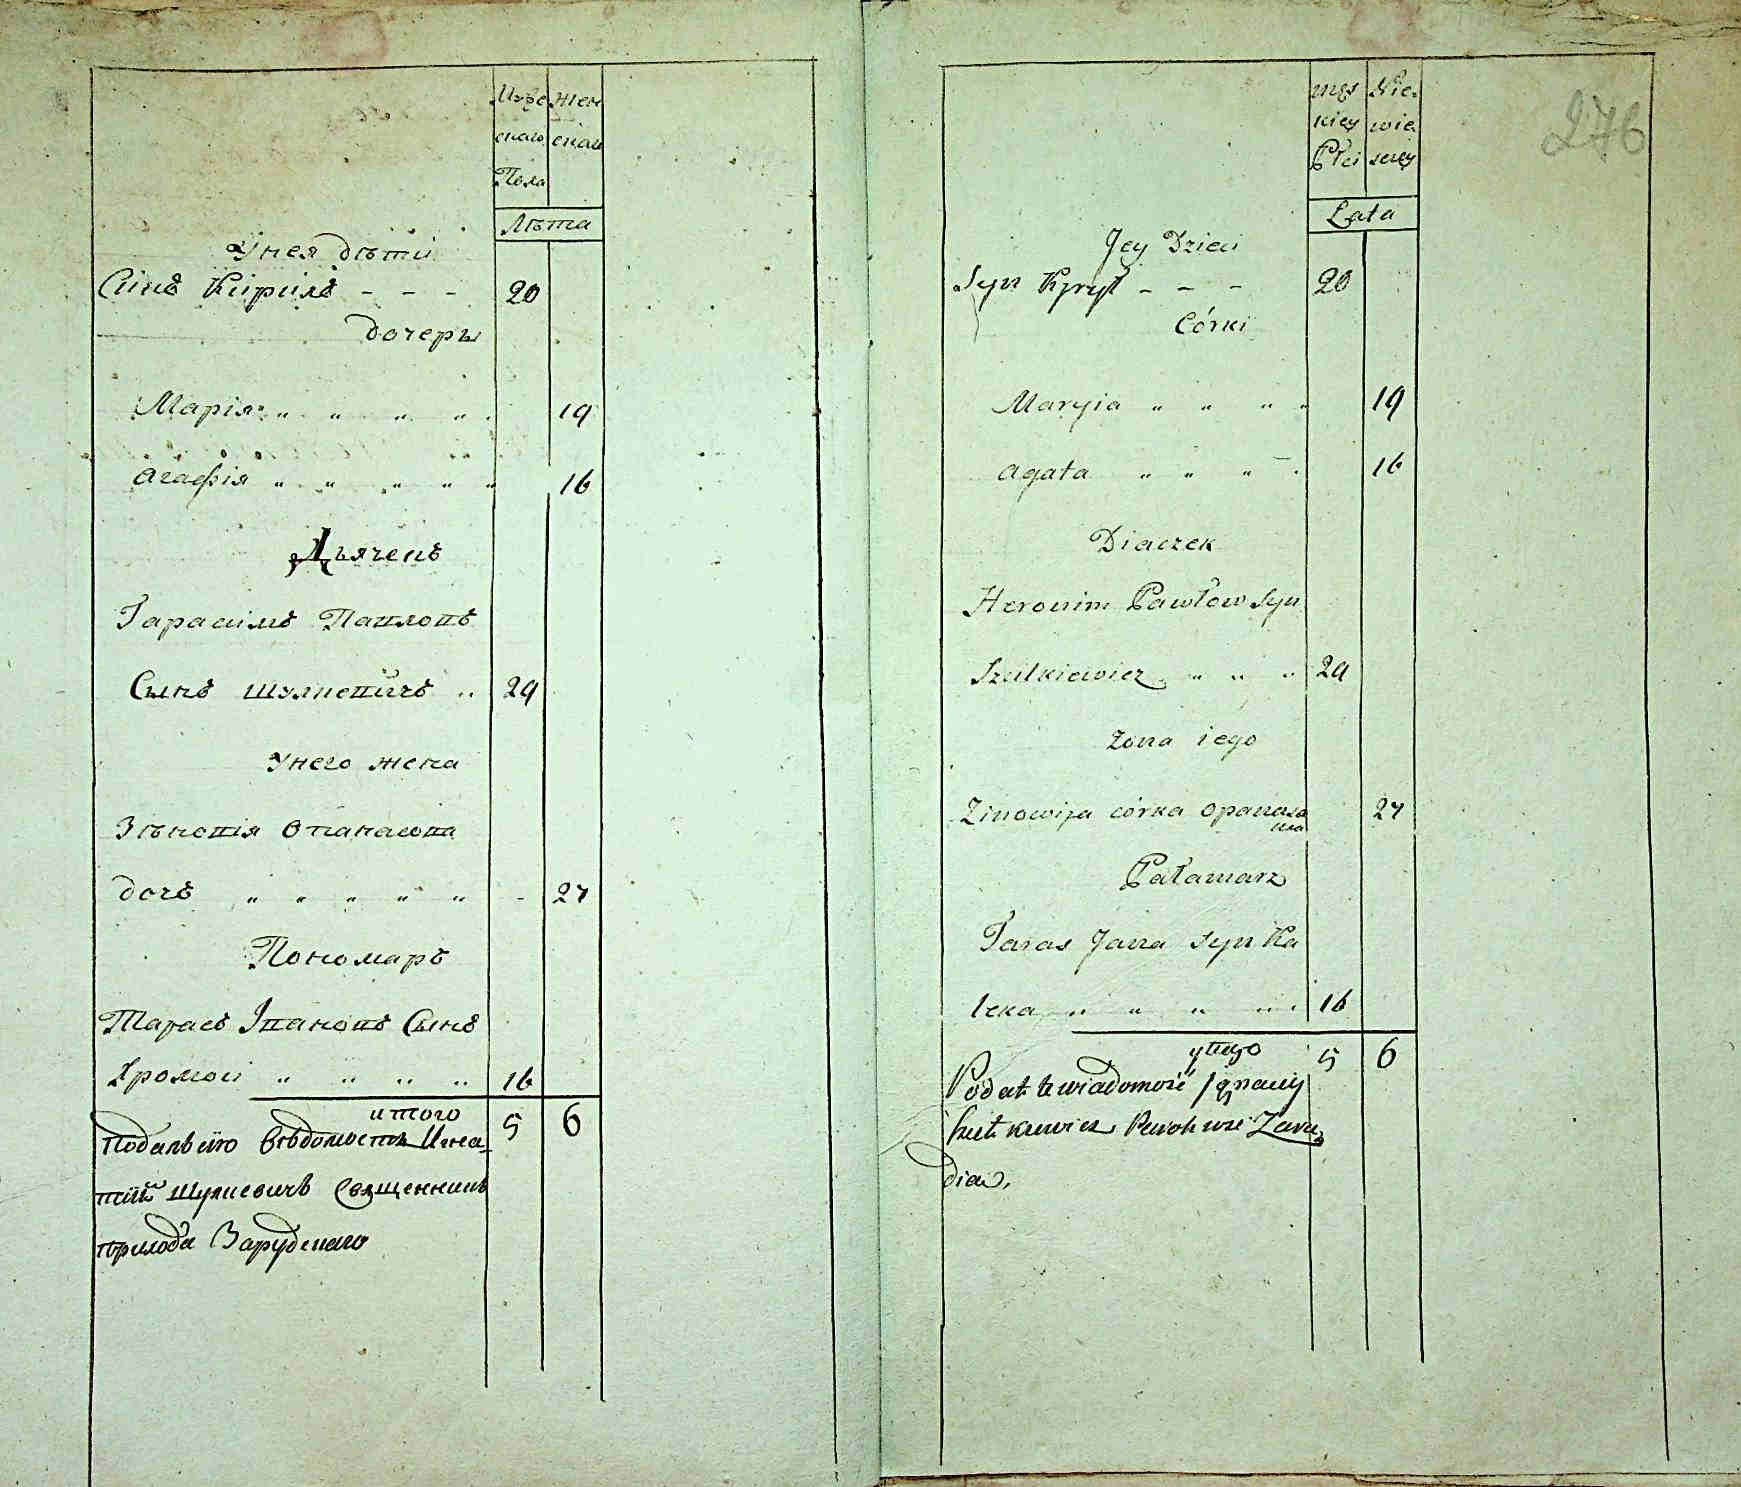 Мужескаго Пола
Женскаго
Лѣта
У нея дѣти
Синъ Кирилъ - - - 20
дочеры
Марія „ „ „ „ 19
Агафія „ „ „ „ „ 16
Дьячекъ
Гарасимъ Павловъ
Сынъ Шулкевичъ „ 29
У него жена
Зѣновія Опанасова
дочь „ „ „ „ „ - 27
Пономарь
Тарасъ Івановъ Сынъ
Хромой „ „ „ „ 16
итого 5 6
Подалъ сію вѣдомость Игна-
тий Шулкевичъ Священникъ
прихода Зарудскаго
276
męskiey Płci
Niewieściey
Lata
Jey Dzieci
Syn Kyrył - - - 20
Córki
Maryia „ „ „ „ 19
Agata „ „ „ - 16
Diaczek
Heronim Pawłow Syn
Szulkiewicz „ „ „ 29
Żona iego
Zinowija córka Opanaso
wa 27
Pałamarz
Taras Jana syn Ka
leka „ „ „ „ 16
y tego 5 6
Podał te wiadomość Ignacy
Szulkiewicz Paroh wsi Zaru
dia.